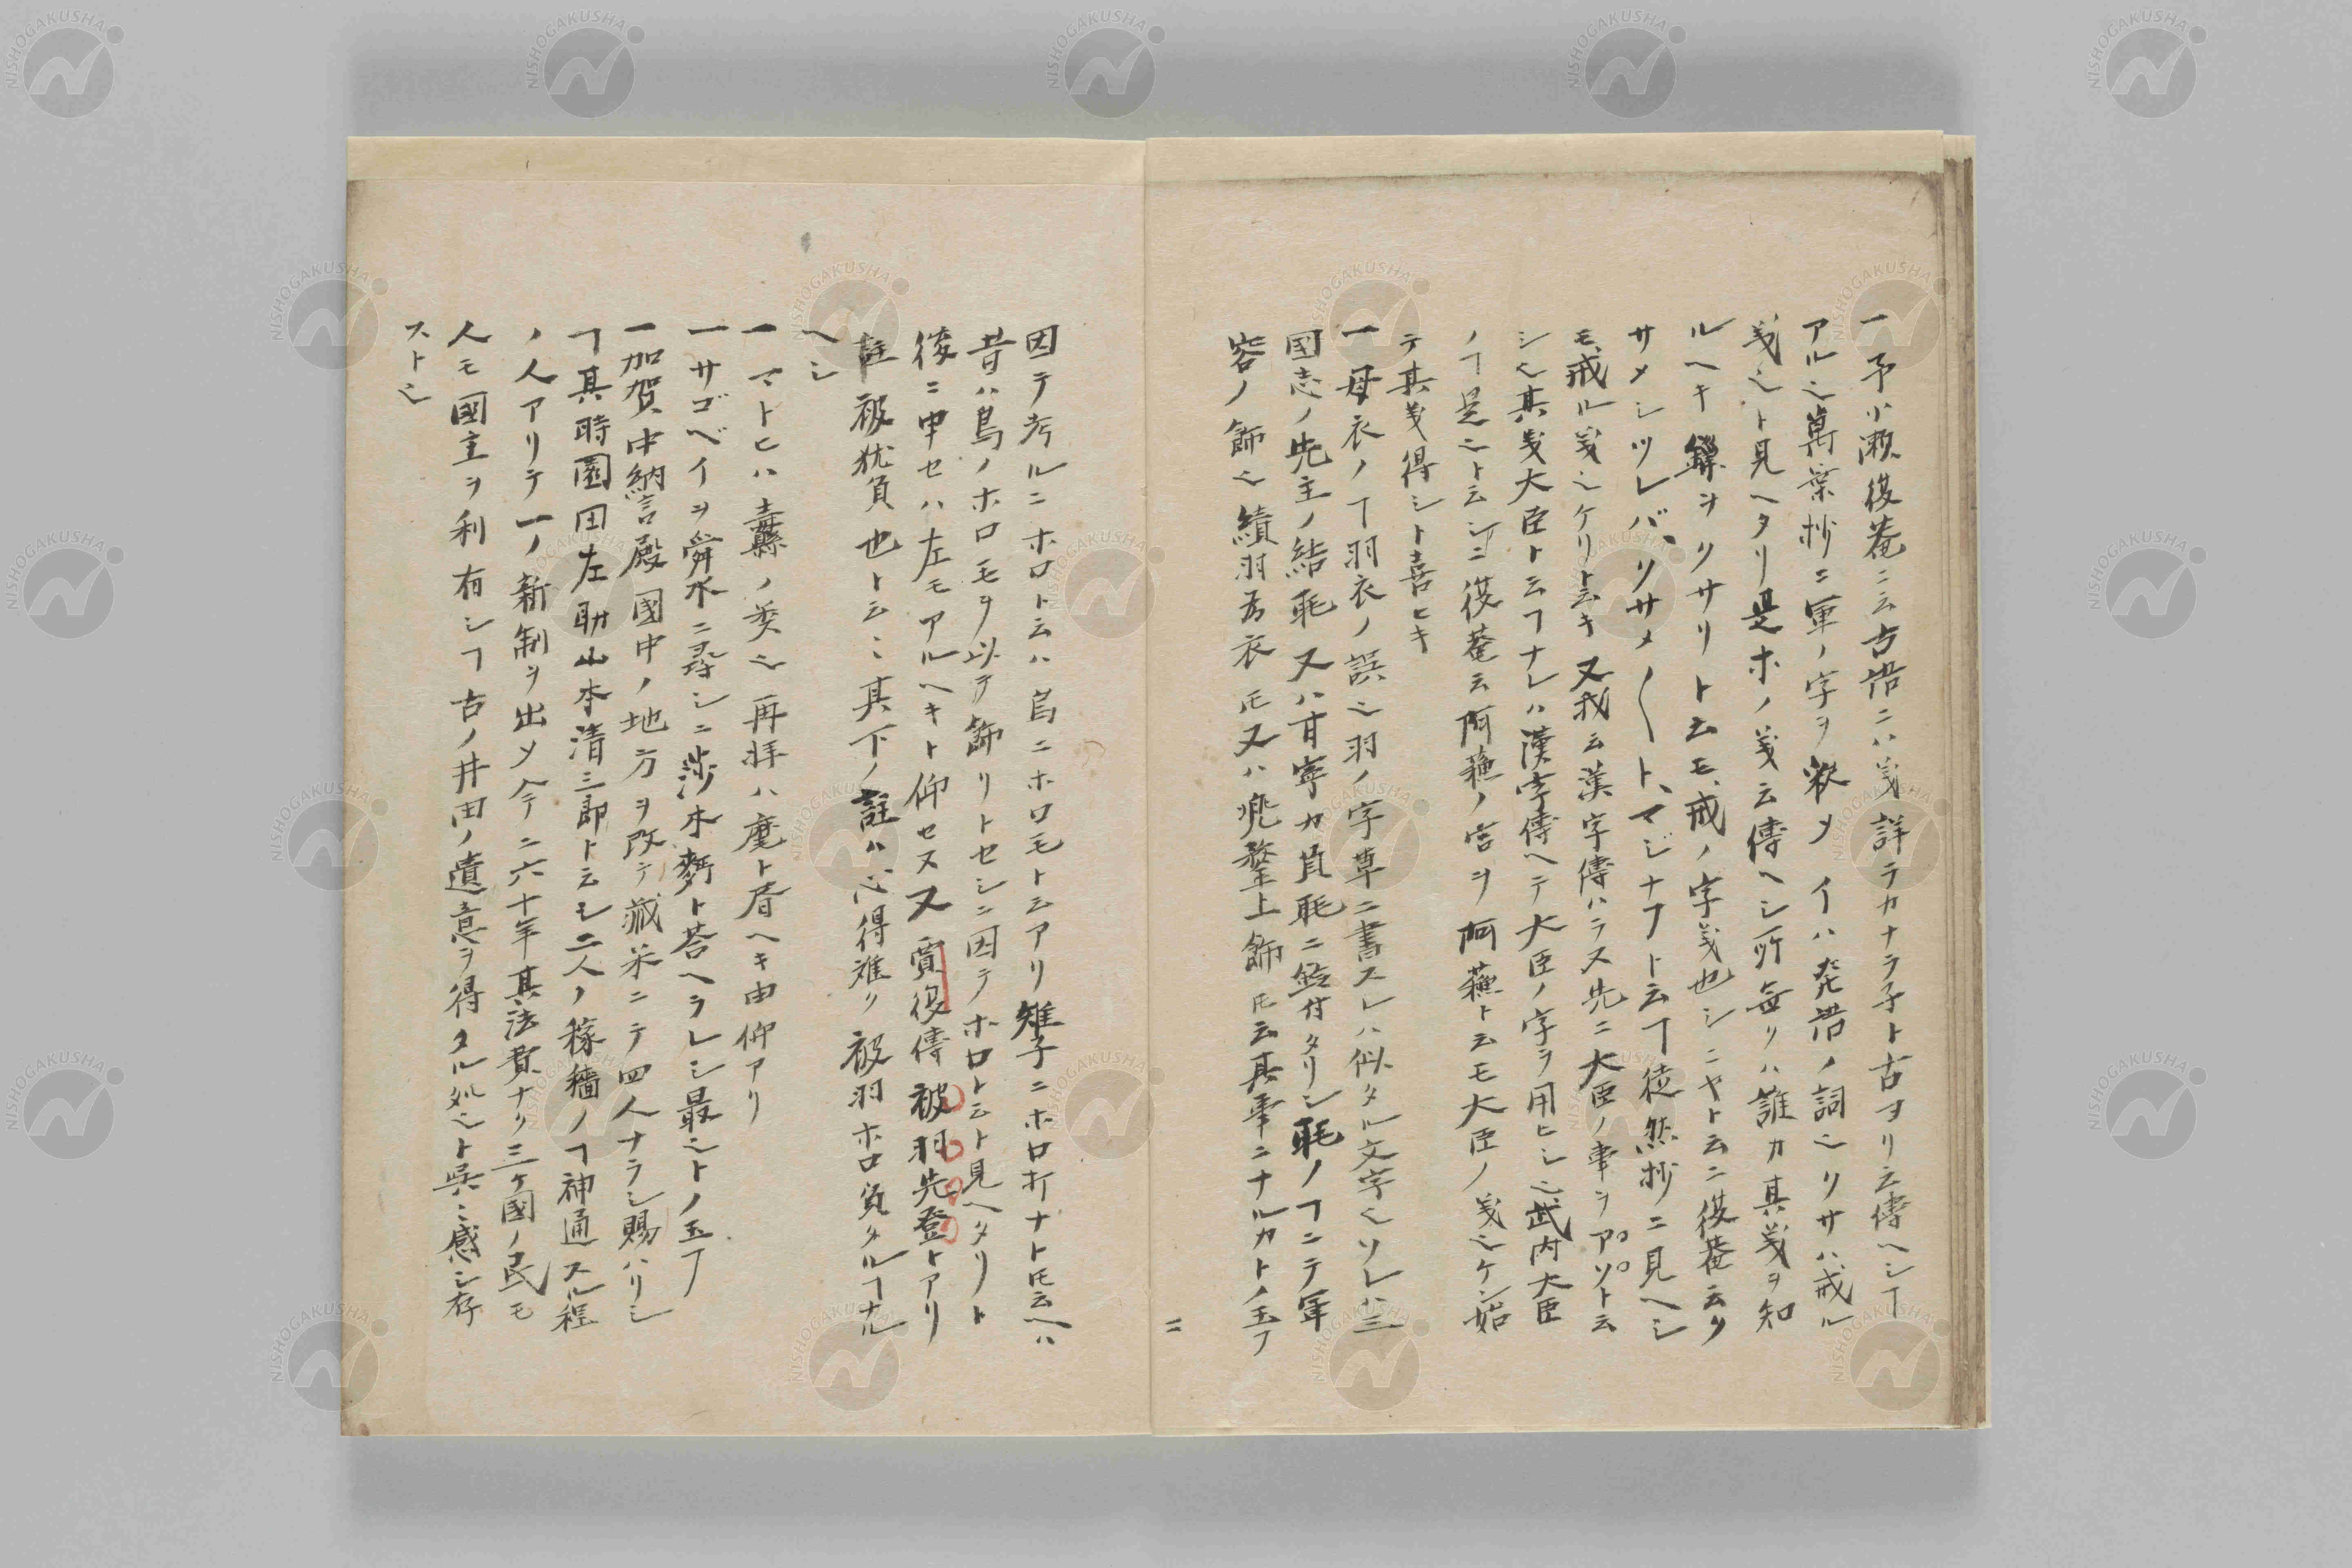 一予小瀬復菴ニ云古語ニハ義詳ラカナラ子ト古ヨリ云傳ヘシヿ
アル也萬葉抄ニ軍ノ字ヲ釈メイハ発語ノ詞也リサハ戒ル
義也ト見ヘタリ是ホノ義云傳ヘシ所無リハ誰カ其義ヲ知
ルヘキ繇ヲクサリト云モ戒ノ字義也シニヤト云ニ復菴云ク
サメシツレバリサメ〱トマジナフト云ヿ徒然抄ニ見ヘシ
モ戒ル義也ケリト云キ又我云漢字傳ハラス先ニ大臣ノ事ヲアソト云
シ也其義大臣ト云フナレハ漢字傳ヘテ大臣ノ字ヲ用ヒシ也武内大臣
ノヿ是也ト云シニ復菴云阿蘓ノ宮ヲ阿蘓ト云モ大臣ノ義也ケン始
テ其義得シト喜ヒキ
一母衣ノヿ羽衣ノ誤也羽ノ字草ニ書スレハ似タル文字也ソレハ三
國志ノ先主ノ結毦又ハ甘寧カ負毦ニ鈴付タリシ毦ノヿニテ軍
容ノ飾也績羽為衣ᅡ又ハ兜鍪上飾ᅡ云其事ニナルカトノ玉フ
二
因テ考ルニホロト云ハ鳥ニホロモト云アリ雉子ニホロ打ナトᅡ云ヘハ
昔ハ鳥ノホロ毛ヲ以テ飾リトセシニ因テホロト云ト見ヘタリト
後ニ申セハ左モアルヘキト仰セヌ又賈復傳被羽先登トアリ
註被犹負也ト云々其下ノ註ハ心得難ク被羽ホロ負タルヿナル
ヘシ
一マトヒハ纛ノ奕也再拝ハ麾ト眉ヘキ由仰アリ
一サゴベイヲ舜水ニ尋シニ沙木麪ト荅ヘラレシ最也トノ玉フ
一加賀中納言殿國中ノ地方ヲ改テ藏米ニテ四人ナラシ賜ハリシ
ヿ其時園田左助山本清三郎ト云シ二人ノ稼穡ノヿ神通スル程
ノ人アリテ一ノ新制ヲ出メ今ニ六十年其法貫ナリ三ケ國ノ民モ
人モ國主ヲ利有シヿ古ノ井田ノ遺意ヲ得タル処也ト呉々感シ存
スト也